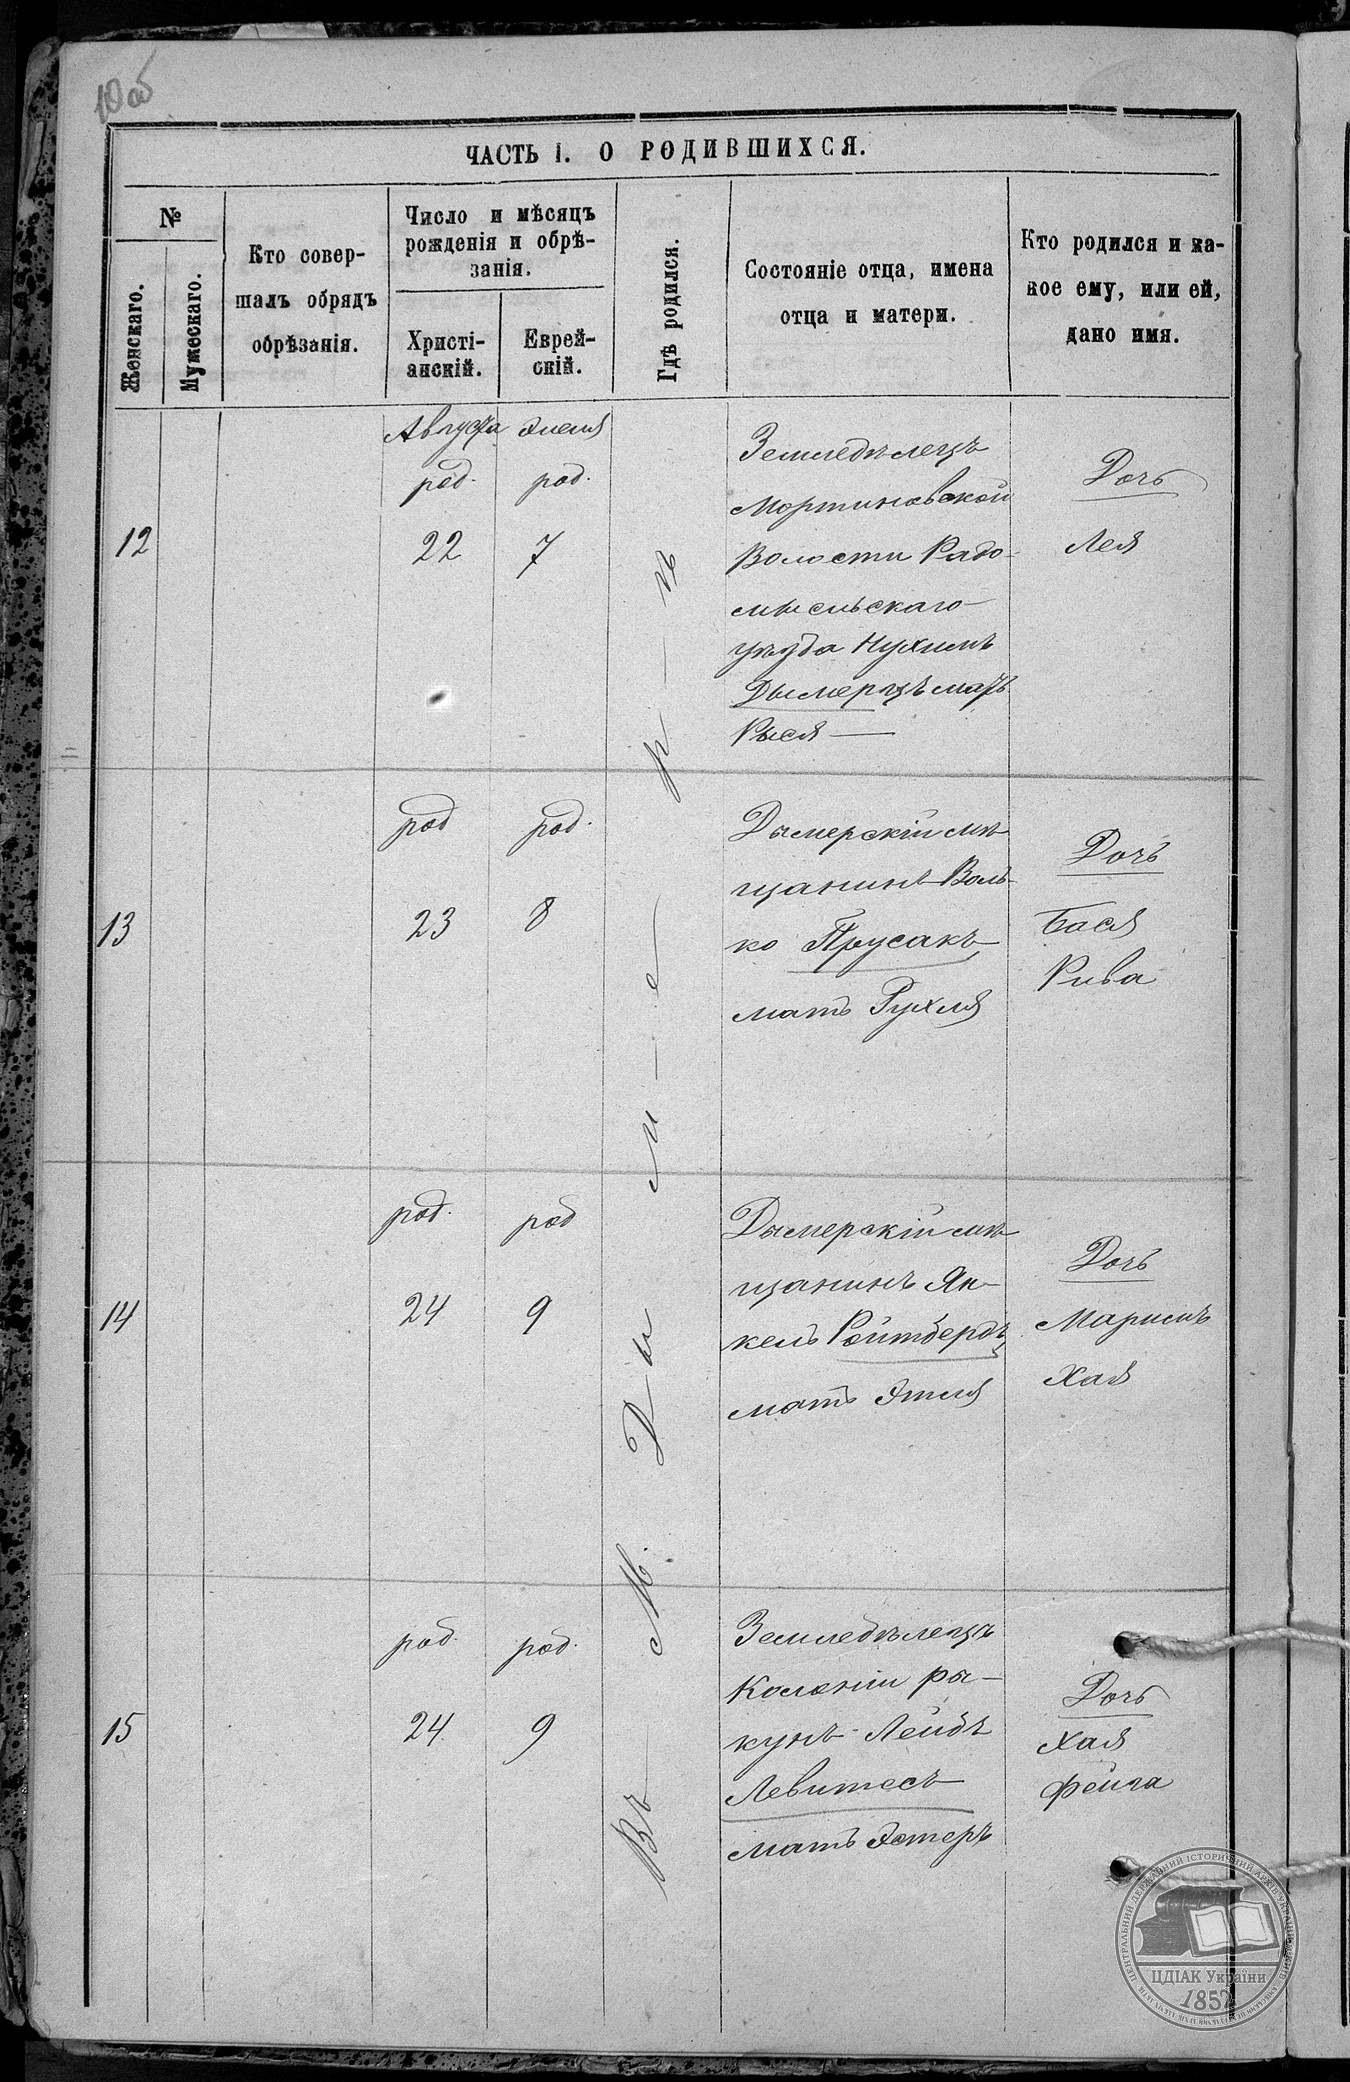 10об
ЧАСТЬ I. О РОДИВШИХСЯ.
№
Женскаго.
Мужескаго.
Кто совер-
шалъ обрядъ
обрѣзанія.
Число и мѣсяцъ
рожденія и обрѣ-
занія.
Христі-
анскій.
Еврей-
скій.
Гдѣ родился.
Состояніе отца, имена
отца и матери.
Кто родился и ка-
кое ему, или ей,
дано имя.
Въ М. Дымерѣ
12
Августа
род.
22
Элеля
род.
7
Земледѣлецъ
Мортиновской
Волости Радо-
мысльскаго
уѣзда Нухимъ
Дымерецъ мать
Рыся
Дочь
Лея
13
род
23
род.
8
Дымерскій мѣ-
щанинъ Воль-
ко Прусакъ
мать Рухля
Дочь
Бася
Рива
14
род.
24
род
9
Дымерскій мѣ-
щанинъ Ян-
кель Ройтбергъ
мать Этля
Дочь
Маримъ
Хая
15
род.
24
род.
9
Земледѣлецъ
Колоніи ры-
кунъ Лейбъ
Левитесъ
мать Эстеръ
Дочь
Хая
Фейга
ЦЕНТРАЛЬНИЙ ДЕРЖАВНИЙ ІСТОРИЧНИЙ АРХІВ УКРАЇНИ
ЦДІАК України
1852